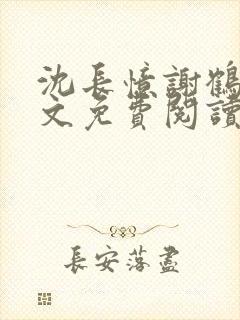 沈長憶謝鶴
文免費閱讀
長安落盡